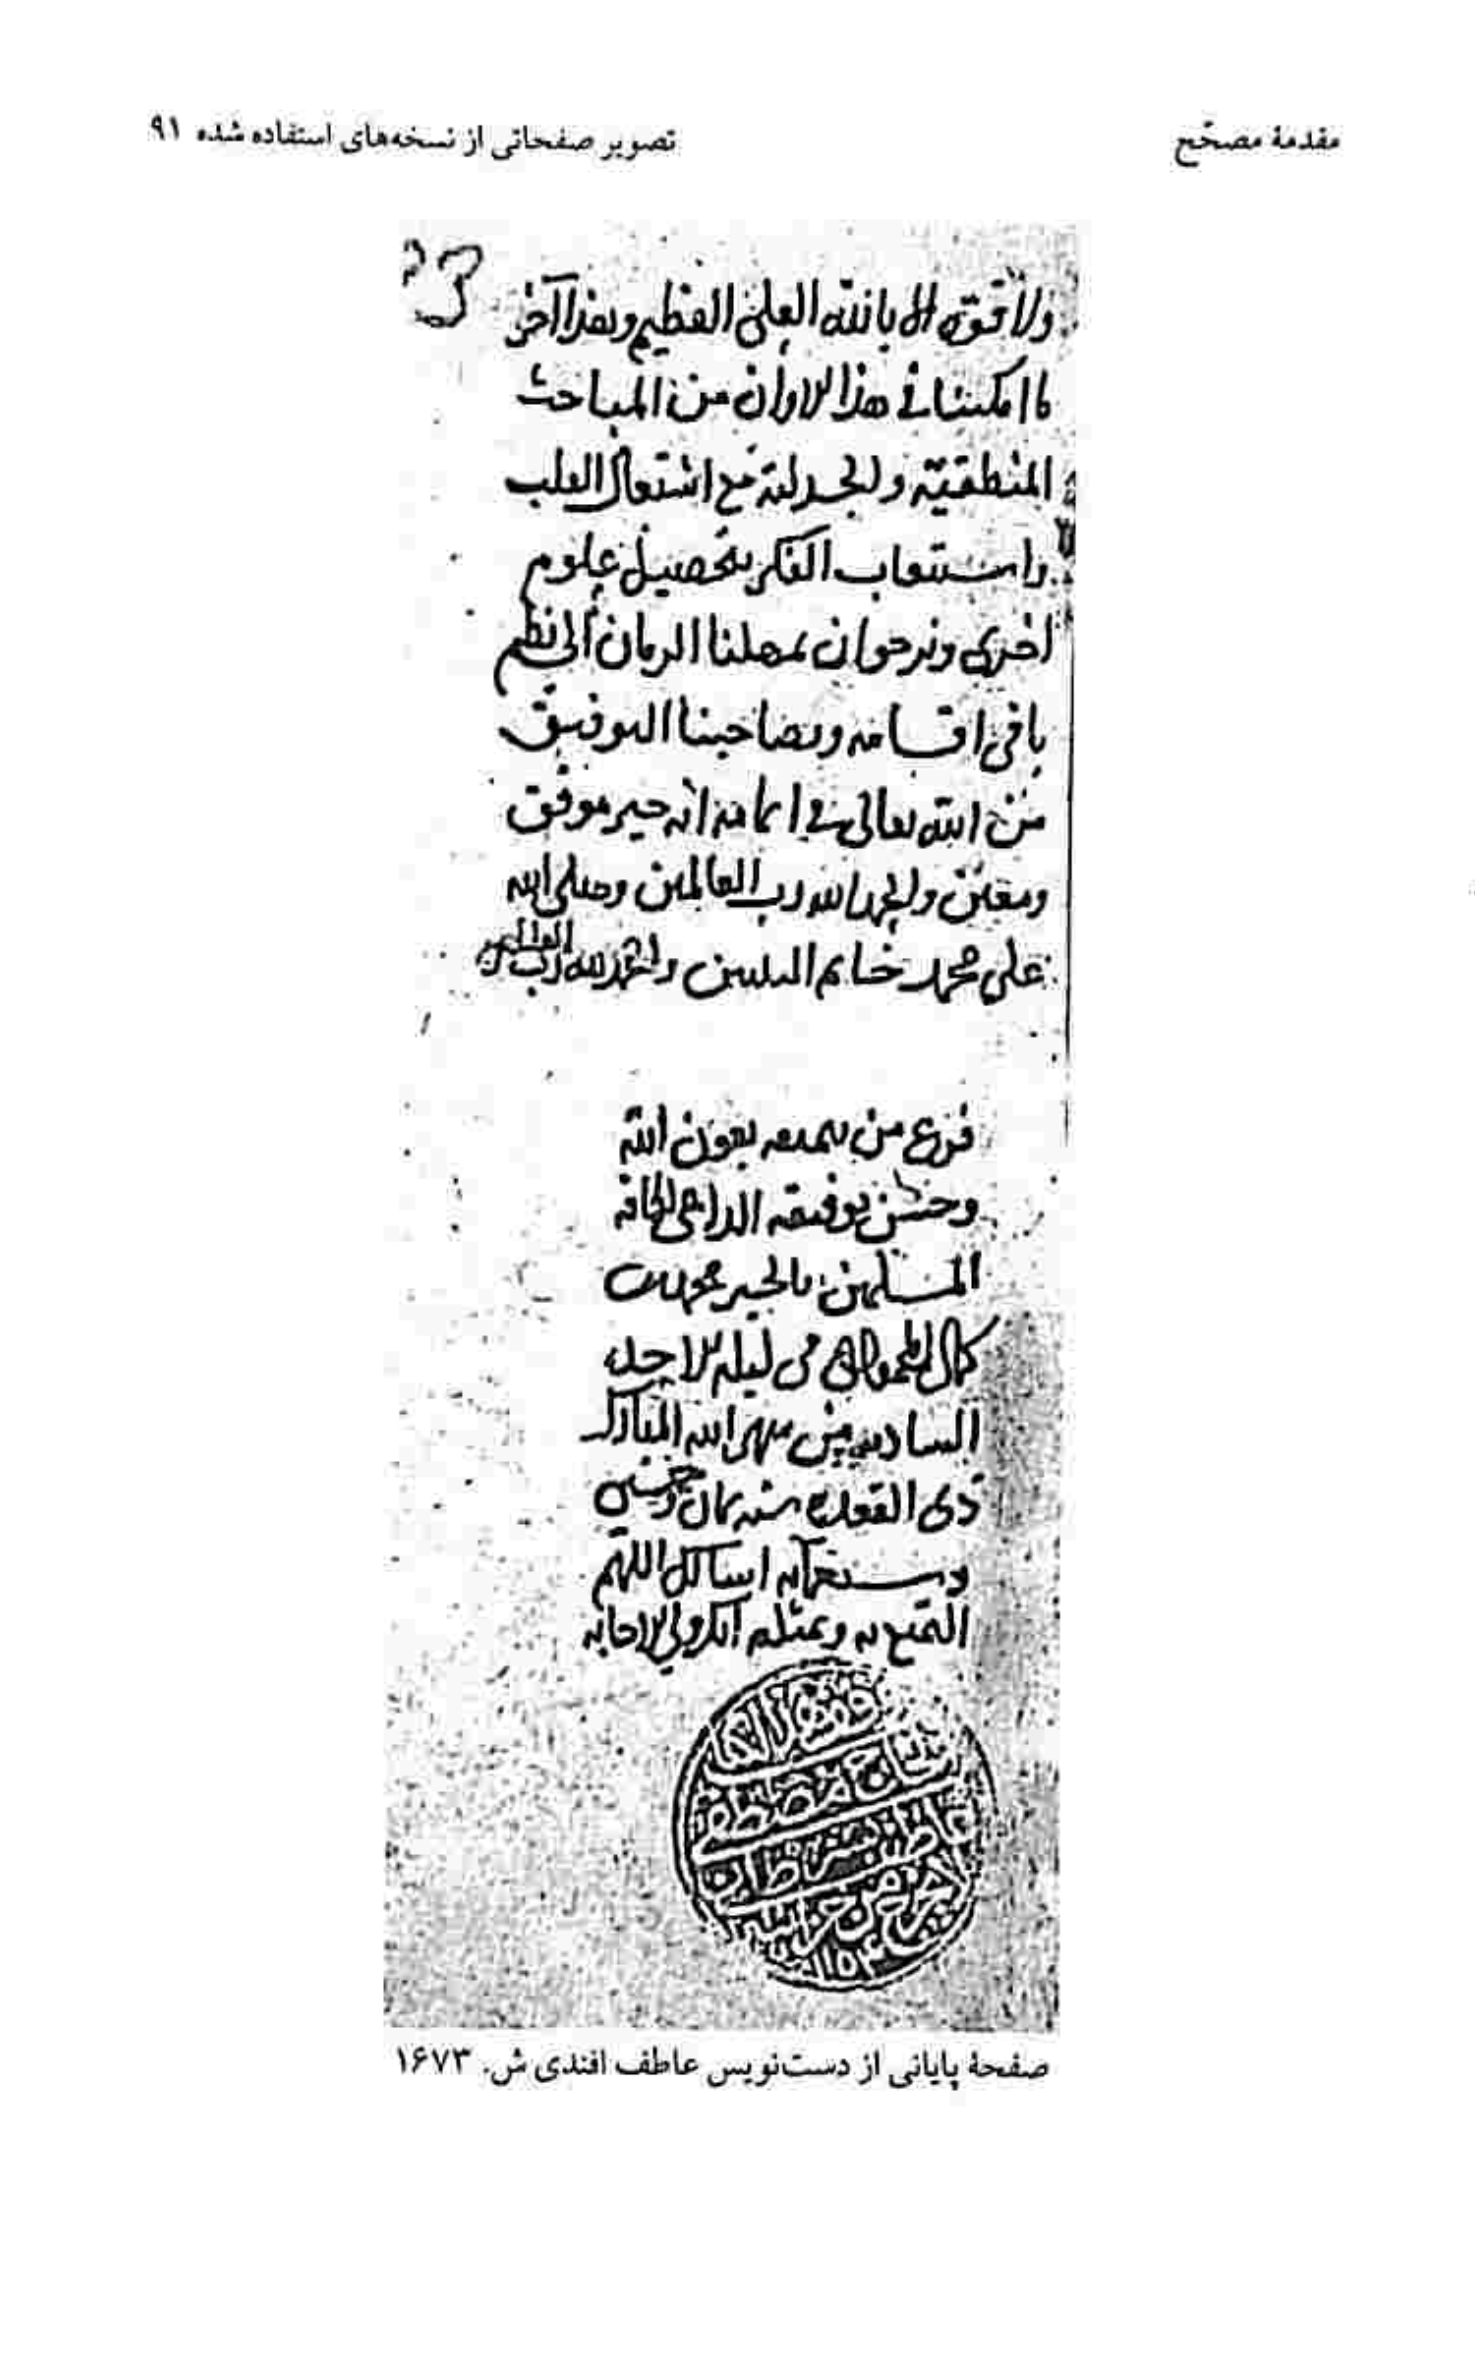 مقدمهٔ مصحّح
تصویر صفحاتی از نسخه‌های استفاده شده ۹۱
ولا قوة الا بالله العلي العظيم وهذا آخر
ما امكننا في هذا الاوان من المباحث
المنطقية والجدلية مع اشتغال القلب
واستيعاب الفكر بتحصيل علوم
اخرى ونرجو ان يمهلنا الزمان الى نظم
باقي اقسامه ويصاحبنا التوفيق
من الله تعالى في اتمامه انه خير موفق
ومعين والحمد لله رب العالمين وصلى الله
على محمد خاتم النبيين والحمد لله رب العالمين
فرغ من بعون الله
وحسن توفيقه الداعي لكافة
المسلمين بالخير محمد بن
كمال في ليلة الاحد
السادس من شهر الله المبارك
ذي القعدة سنة ثمان وخمسين
وستمائة اسالك اللهم
التمتع به وبمثله انك ولي الاجابة
وقف
مصطفى
عاطف
۱۱۵۴
صفحهٔ پایانی از دست‌نویس عاطف افندی ش. ۱۶۷۳